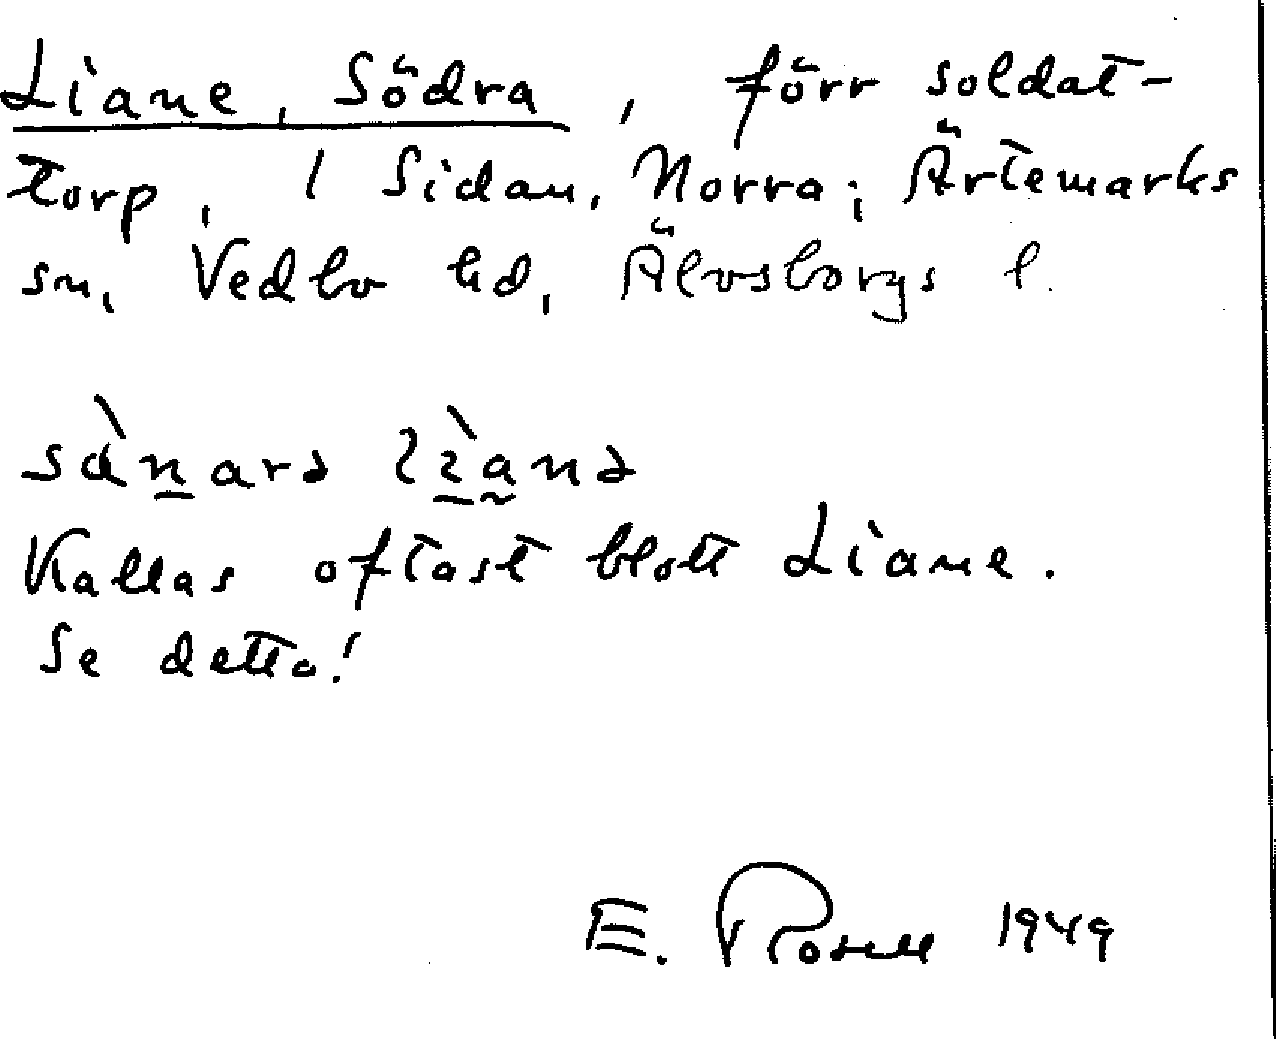 Liane, Södra, förr soldat-
torp, / Sidan, Norra; Ärtemarks
sn, Vedbo hd, Älvsborgs l.
Kallas oftast blott Liane.
Se detta!
E. Rosell 1949